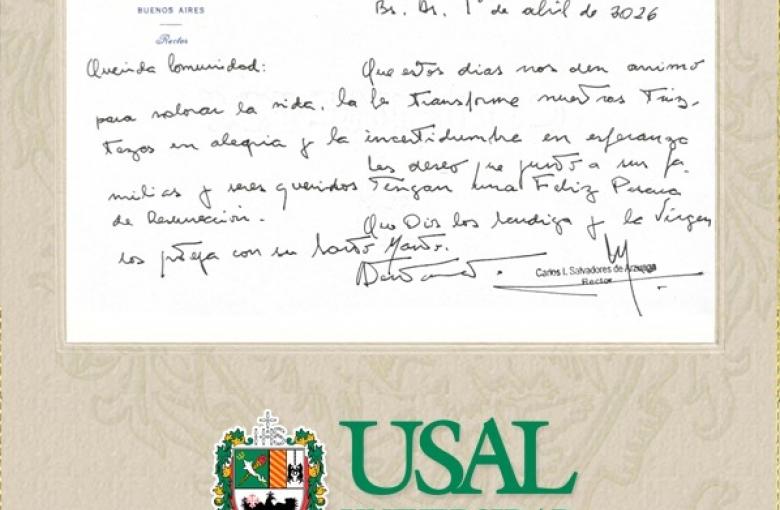 BUENOS AIRES
Rector
Bs. As. 1° de abril de 2026
Querida Comunidad: Que estos días nos den animo
para valorar la vida. La fe transforme nuestras Tris-
tezas en alegría y la incertidumbre en esperanza
Les deseo que junto a sus fa-
milias y seres queridos Tengan una Feliz Pascua
de Resurrección. Que Dios los bendiga y la Virgen
los proteja con su Santo Manto.
Carlos I. Salvadores de Arzuaga
Rector
IHS
USAL